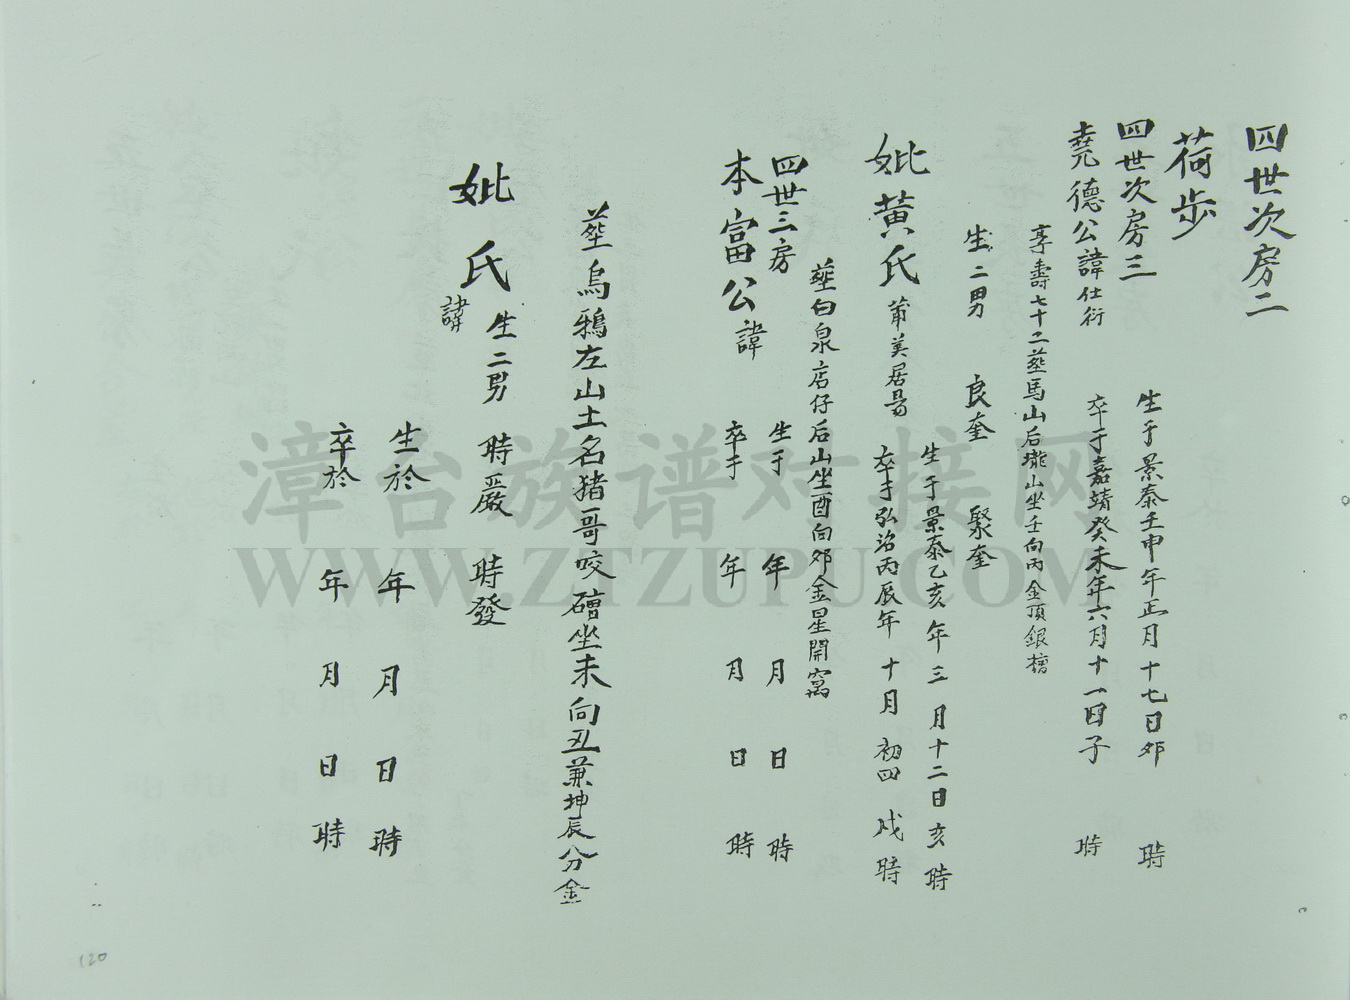 四世次房二
荷步
四世次房三
堯德公諱仕衍
生于景泰壬申年正月十七日卯時
卒于嘉靖癸未年六月十一日子時
享壽七十二葬馬山后壠山坐壬向丙金頂銀檣
生二男 良奎 聚奎
妣黃氏 莆美居昜
生于景泰乙亥年三月十二日亥時
卒于弘治丙辰年十月初四戌時
葬白泉店仔后山坐酉向卯金星開窩
四世三房
本富公諱
生于 年 月 日 時
卒于 年 月 日 時
葬烏鴉左山土名猪哥咬磳坐未向丑兼坤辰分金
妣 氏 生二男 時嚴 時發
諱
生於 年 月 日 時
卒於 年 月 日 時
漳台族谱对接网
WWW.ZTZUPU.COM
120